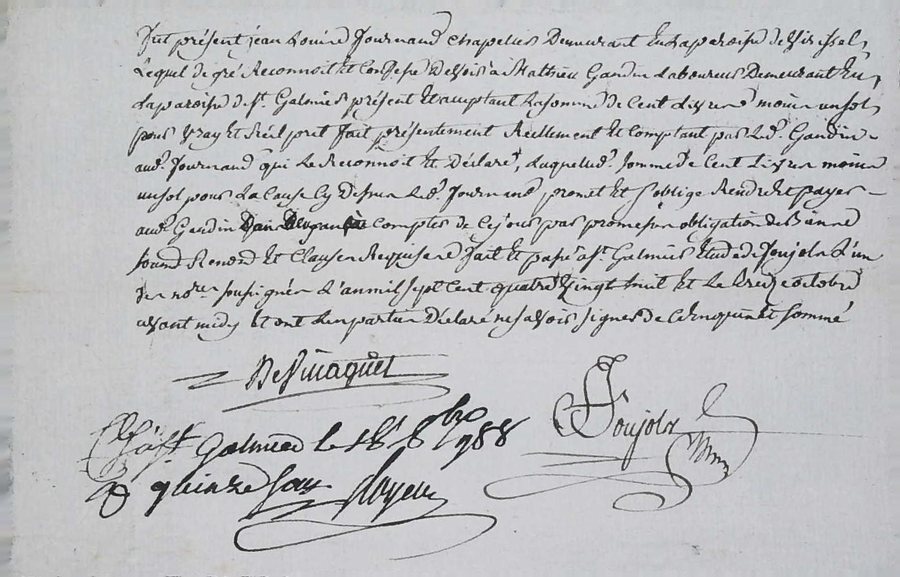 fut présent jean Journand chapellier Demeurant En La paroisse de
Lequel de gré Reconnoit Et Confesse Devoir à Mathieu Gaudin Laboureur Demeurant En
La paroisse de St. Galmier présent Et acceptant La somme de Cent Livres moins un sol
pour vray Et Réel pret fait présentement Réellement Et Comptant par Led. Gaudin
aud. Journand qui Le Reconnoit Et Déclare, Laquelle d. somme de Cent Livres moins
un sol pour La Cause Cy Dessus Led. Journand promet Et s'oblige Rendre Et payer
aud. Gaudin Dans Compter de Ce jour par promesse obligation de Biens
soumd Renond Et Clauses Requises fait Et passé à St. Galmier Etude de Joujoln L'un
des nores soussignés L'an mil sept Cent quatre vingt huit Et Le treize octobre
avant midy Et ont Les parties Déclaré ne savoir signer de Ce Enquis Et sommé
Clé à St. Galmier le 18 8bre 1788
R quinze sous
Joujoln